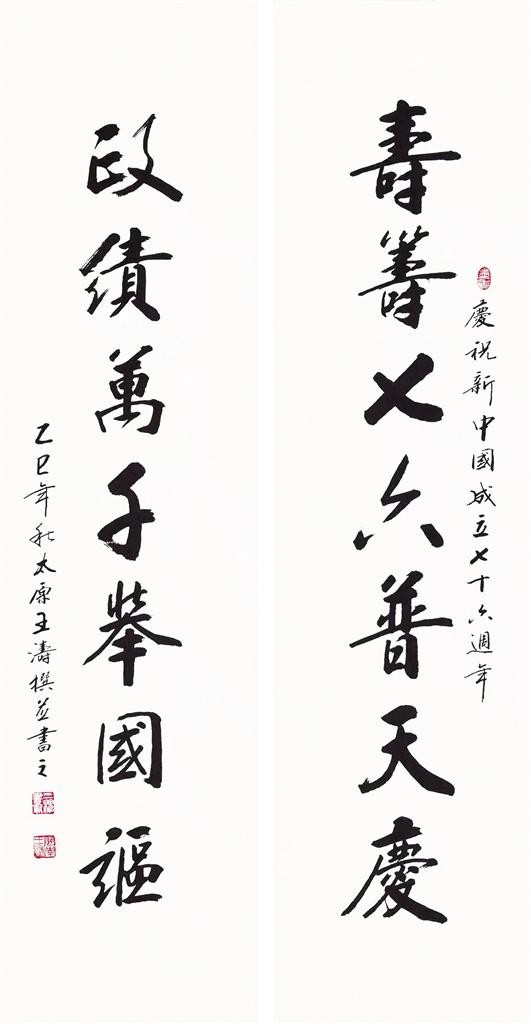 慶祝新中國成立七十六週年
壽籌七六普天慶
政績萬千舉國謳
乙巳年秋太原王濤撰并書之